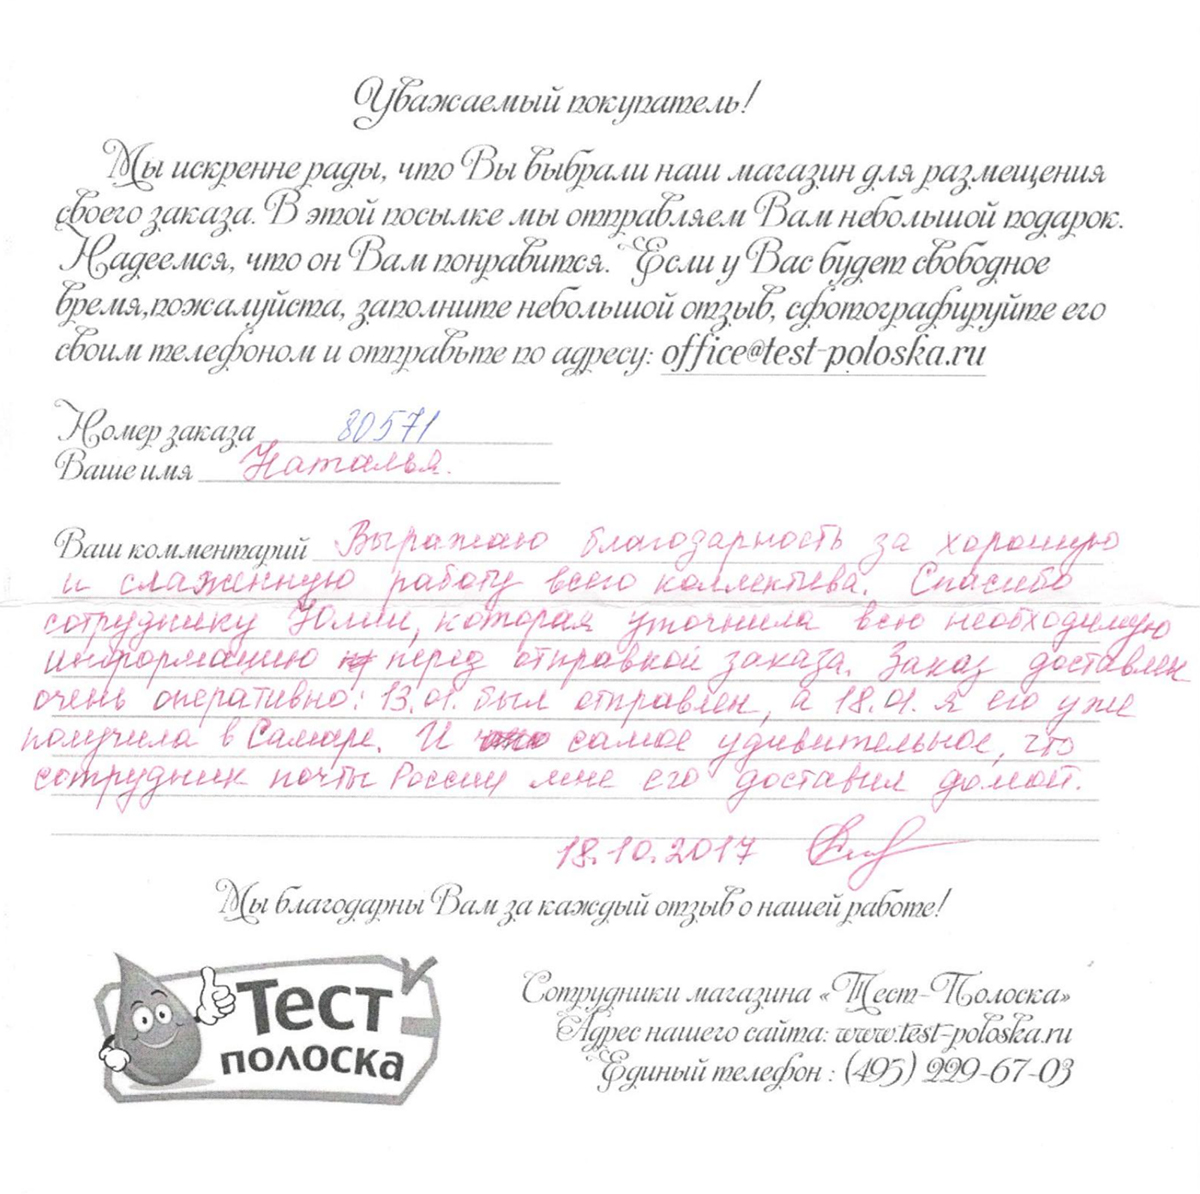 Уважаемый покупатель!
Мы искренне рады, что Вы выбрали наш магазин для размещения
своего заказа. В этой посылке мы отправляем Вам небольшой подарок.
Надеемся, что он Вам понравится. Если у Вас будет свободное
время,пожалуйста, заполните небольшой отзыв, сфотографируйте его
своим телефоном и отправьте по адресу: office@test-poloska.ru
Номер заказа 80571
Ваше имя Наталья.
Ваш комментарий Выражаю благодарность за хорошую
и слаженную работу всего коллектива. Спасибо
сотруднику Юлии, которая уточнила всю необходимую
информацию перед отправкой заказа. Заказ доставлен
очень оперативно: 13.01. был отправлен, а 18.01. я его уже
получила в Самаре. И самое удивительное, что
сотрудник почты России мне его доставил домой.
18.10.2017
Мы благодарны Вам за каждый отзыв о нашей работе!
Тест
полоска
Сотрудники магазина «Тест-Полоска»
Адрес нашего сайта: www.test-poloska.ru
Единый телефон : (495) 229-67-03